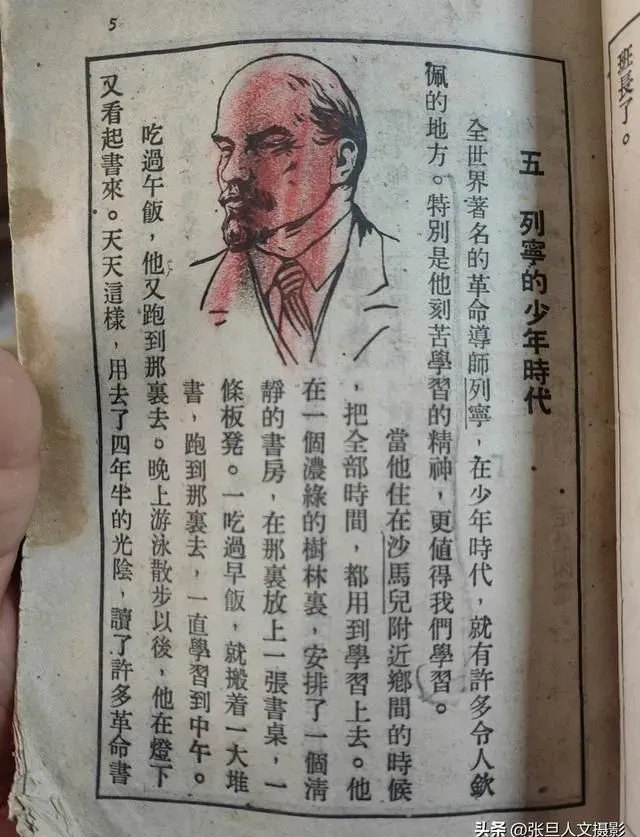 班長了。
五　列寧的少年時代
全世界著名的革命導師列寧，在少年時代，就有許多令人欽
佩的地方。特別是他刻苦學習的精神，更值得我們學習。
當他住在沙馬兒附近鄉間的時候
，把全部時間，都用到學習上去。他
在一個濃綠的樹林裏，安排了一個清
靜的書房，在那裏放上一張書桌，一
條板凳。一吃過早飯，就搬着一大堆
書，跑到那裏去，一直學習到中午。
吃過午飯，他又跑到那裏去。晚上游泳散步以後，他在燈下
又看起書來。天天這樣，用去了四年半的光陰，讀了許多革命書
5
头条 @张旦人文摄影